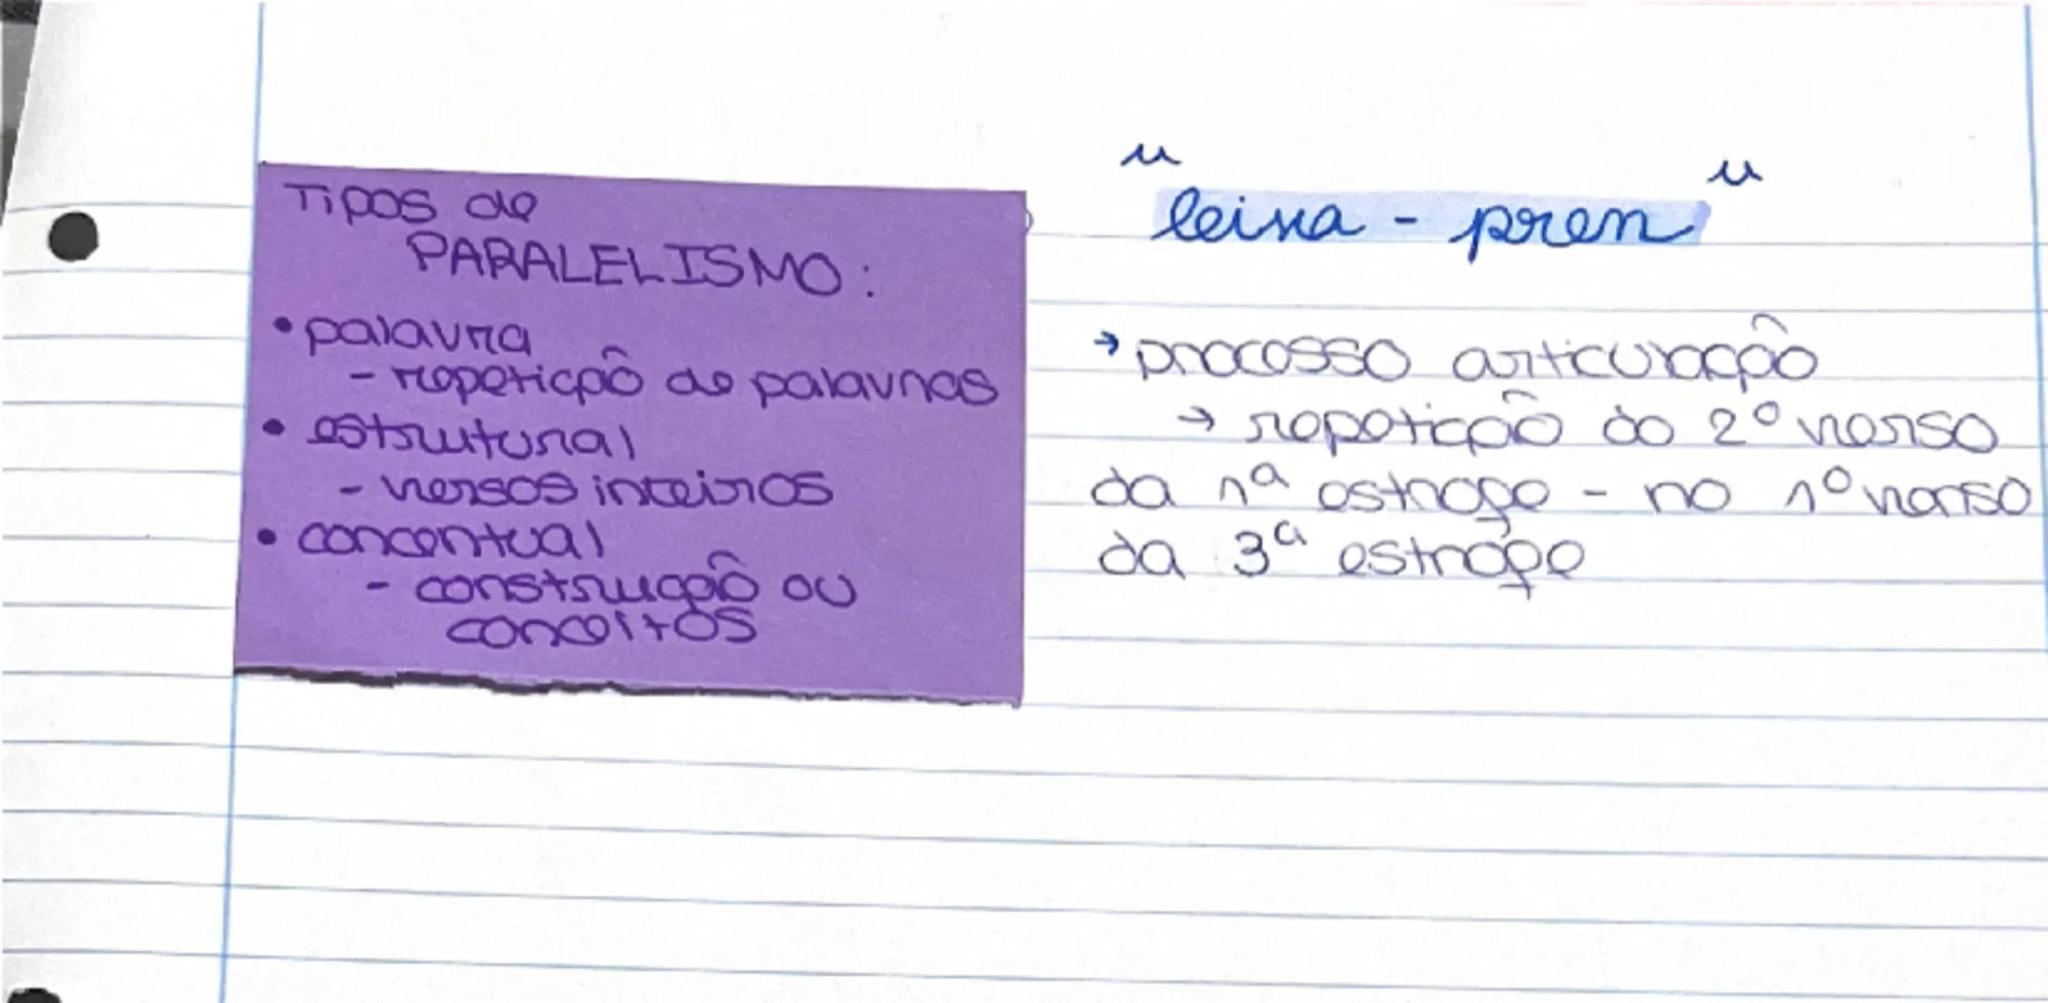 Tipos de
PARALELISMO:
• palavra
- repetição de palavras
• estrutural
- versos inteiros
• concentual
- construção ou
conceitos
"leixa - pren"
→ processo articulação
→ repetição do 2º verso
da 1ª estrofe - no 1º verso
da 3ª estrofe